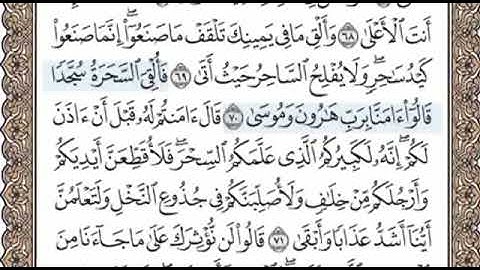 أَنتَ ٱلْأَعْلَىٰ ٦٨ وَأَلْقِ مَا فِى يَمِينِكَ تَلْقَفْ مَا صَنَعُوٓا۟ ۖ إِنَّمَا صَنَعُوا۟
كَيْدُ سَٰحِرٍ ۖ وَلَا يُفْلِحُ ٱلسَّاحِرُ حَيْثُ أَتَىٰ ٦٩ فَأُلْقِىَ ٱلسَّحَرَةُ سُجَّدًا
قَالُوٓا۟ ءَامَنَّا بِرَبِّ هَٰرُونَ وَمُوسَىٰ ٧٠ قَالَ ءَامَنتُمْ لَهُۥ قَبْلَ أَنْ ءَاذَنَ
لَكُمْ ۖ إِنَّهُۥ لَكَبِيرُكُمُ ٱلَّذِى عَلَّمَكُمُ ٱلسِّحْرَ ۖ فَلَأُقَطِّعَنَّ أَيْدِيَكُمْ
وَأَرْجُلَكُم مِّنْ خِلَٰفٍ وَلَأُصَلِّبَنَّكُمْ فِى جُذُوعِ ٱلنَّخْلِ وَلَتَعْلَمُنَّ
أَيُّنَآ أَشَدُّ عَذَابًا وَأَبْقَىٰ ٧١ قَالُوا۟ لَن نُّؤْثِرَكَ عَلَىٰ مَا جَآءَنَا مِنَ